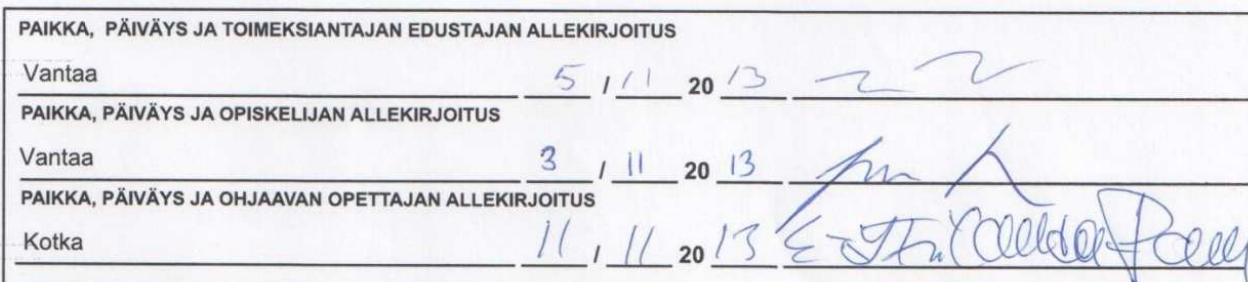 PAIKKA, PÄIVÄYS JA TOIMEKSIANTAJAN EDUSTAJAN ALLEKIRJOITUS
Vantaa 5 / 11 20 13
PAIKKA, PÄIVÄYS JA OPISKELIJAN ALLEKIRJOITUS
Vantaa 3 / 11 20 13
PAIKKA, PÄIVÄYS JA OHJAAVAN OPETTAJAN ALLEKIRJOITUS
Kotka 11 / 11 20 13